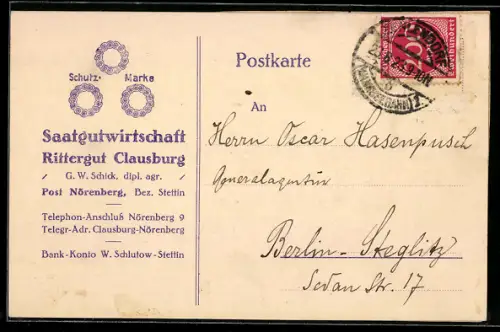 Schutz- Marke
Saatgutwirtschaft
Rittergut Clausburg
G. W. Schick, dipl. agr.
Post Nörenberg, Bez. Stettin
Telephon-Anschluß Nörenberg 9
Telegr.-Adr. Clausburg-Nörenberg
Bank-Konto W. Schlutow-Stettin
Postkarte
An
Herrn Oscar Hasenpusch
Generalagentur
Berlin-Steglitz
Sedan Str. 17
200
Zweihundert